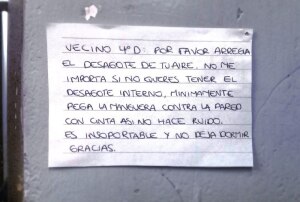 VECINO 4°D: POR FAVOR ARREGLA
EL DESAGOTE DE TU AIRE. NO ME
IMPORTA SI NO QUERES TENER EL
DESAGOTE INTERNO, MINIMAMENTE
PEGA LA MANGUERA CONTRA LA PARED
CON CINTA ASI NO HACE RUIDO.
ES INSOPORTABLE Y NO DEJA DORMIR
GRACIAS.